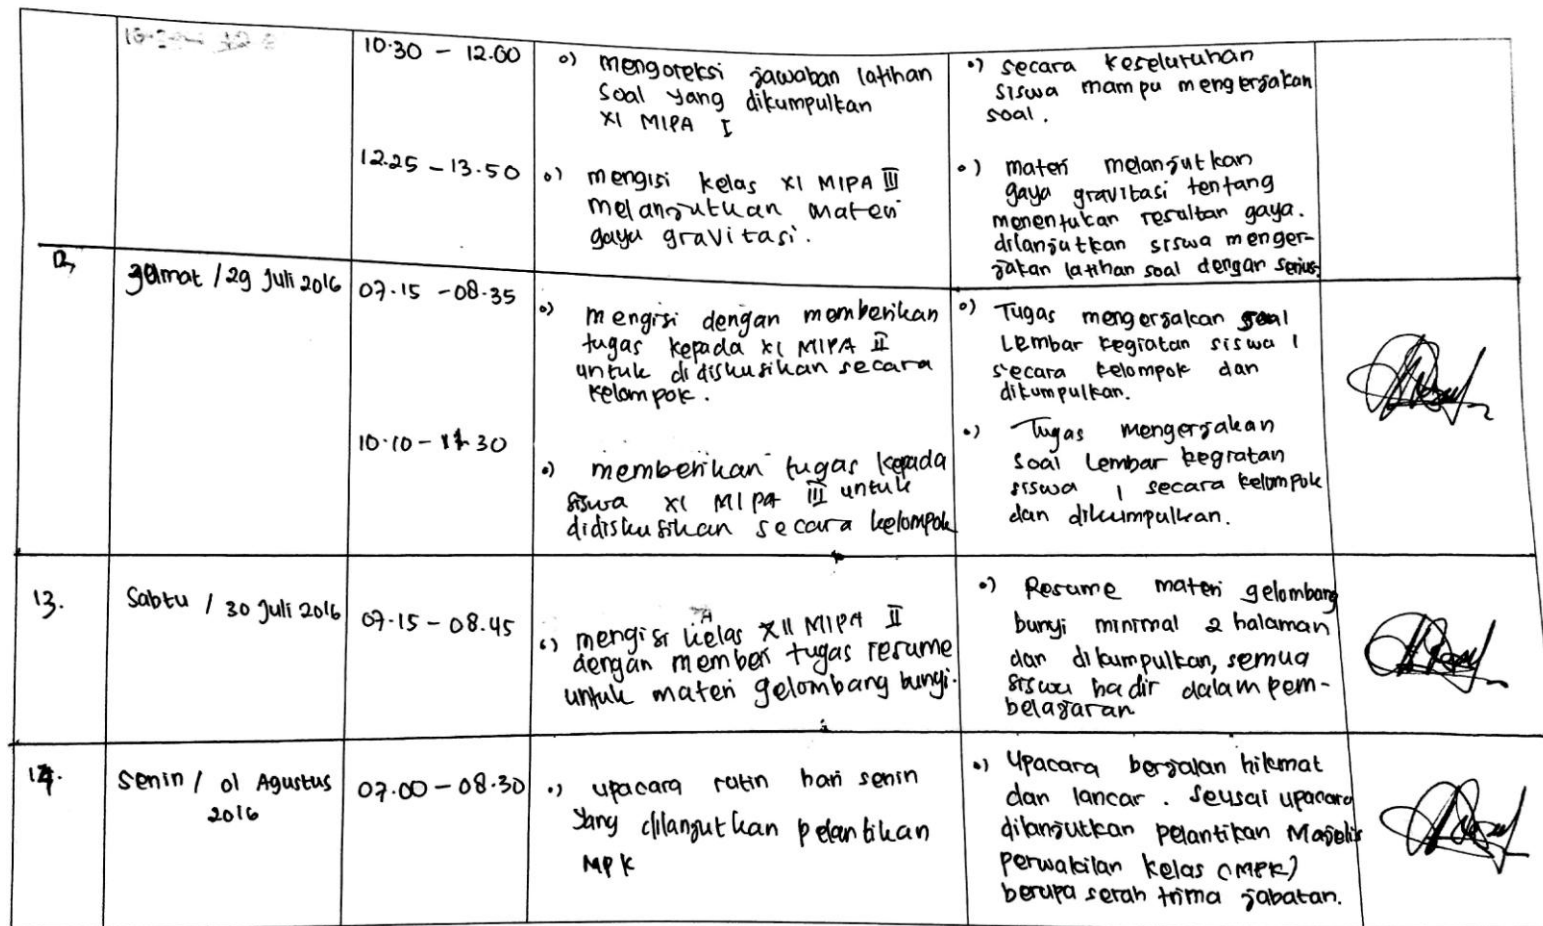 10.30 - 12.00
o) mengoreksi jawaban latihan
soal yang dikumpulkan
XI MIPA I
o) secara keseluruhan
siswa mampu mengerjakan
soal.
12.25 - 13.50
o) mengisi kelas XI MIPA III
melanjutkan materi
gaya gravitasi.
o) materi melanjutkan
gaya gravitasi tentang
menentukan resultan gaya.
dilanjutkan siswa menger-
jakan latihan soal dengan serius.
12,
Jumat / 29 Juli 2016
07.15 - 08.35
o) mengisi dengan memberikan
tugas kepada XI MIPA II
untuk didiskusikan secara
kelompok.
o) Tugas mengerjakan soal
Lembar kegiatan siswa 1
secara kelompok dan
dikumpulkan.
10.10 - 11.30
o) memberikan tugas kepada
siswa XI MIPA III untuk
didiskusikan secara kelompok
o) Tugas mengerjakan
soal Lembar kegiatan
siswa 1 secara kelompok
dan dikumpulkan.
13.
Sabtu / 30 Juli 2016
07.15 - 08.45
o) mengisi kelas XII MIPA II
dengan memberi tugas resume
untuk materi gelombang bunyi.
o) Resume materi gelombang
bunyi minimal 2 halaman
dan dikumpulkan, semua
siswa hadir dalam pem-
belajaran
14.
Senin / 01 Agustus
2016
07.00 - 08.30
o) upacara rutin hari senin
yang dilanjutkan pelantikan
MPK
o) Upacara berjalan hikmat
dan lancar. Seusai upacara
dilanjutkan pelantikan Majelis
perwakilan kelas (MPK)
berupa serah trima jabatan.